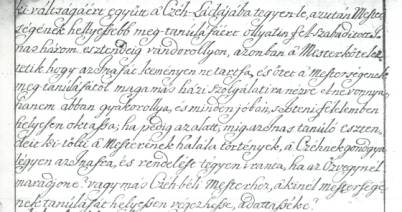 ki váltságáért együtt, a Czéh Ládájába tegyen le, azután Mester-
ségének hellyessebb meg-tanúlásáért ollyatin fel-szabadíttott
Inas három esztendeig vándorollyon, azonban a Mester köteles-
tetik hogy az Inasát keményen ne tartsa, és őtet a Mesterségének
meg-tanúlásától magamás házi szolgálatira nézve el ne vonnya,
hanem abban gyakorollya, és minden jóban, s isteni félelemben
helyesen oktassa; ha pedig azalatt, míg az Inas tanúló eszten-
deit ki-tölti a Mesterének halála történnék, a Czéhnek gondgya
légyen az Inasra, és rendelést tégyen iránta, ha az Özvegynél
maradjoné? vagy más Czéhbéli Mesterhez, a kinél mestersége-
nek tanúlását helyessen végezhesse, adattassék é?